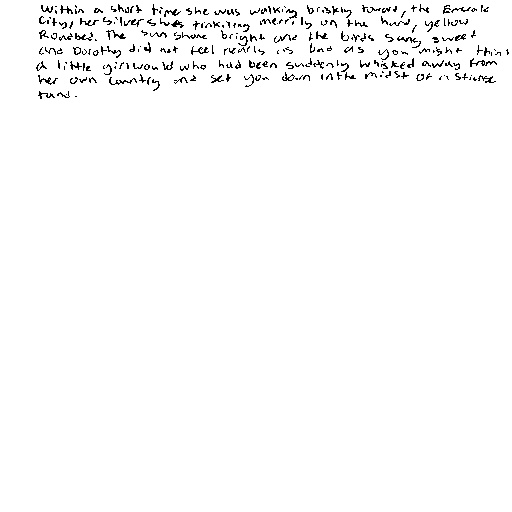 Within a short time she was walking briskly toward, the Emerald
City, her Silver shoes tinkling merrily on the hard, yellow
Roadbed. The sun shone bright and the birds sang sweet
and Dorothy did not feel nearly as bad as you might think
a little girl would who had been suddenly whisked away from
her own country and set you down in the midst of a strange
land.